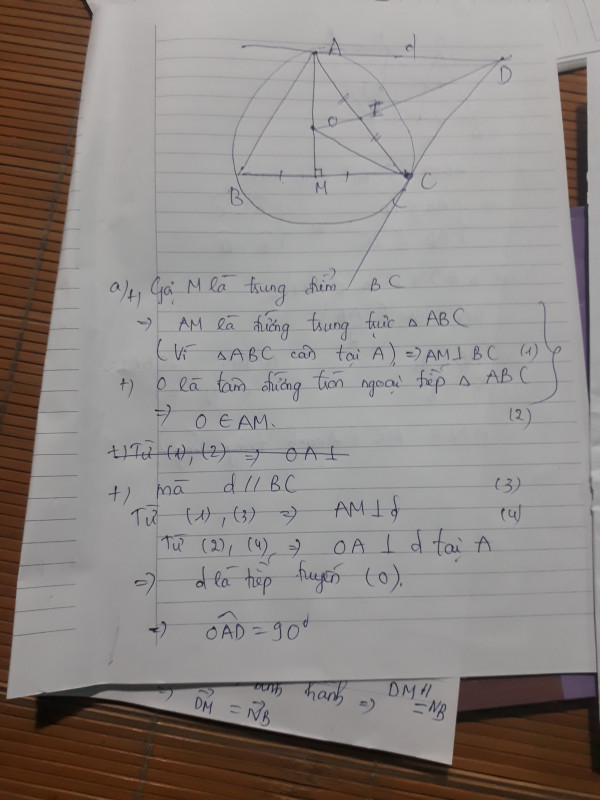 A
d
D
O
I
B
M
C
a) +, Gọi M là trung điểm BC
=> AM là đường trung trực △ ABC
(Vì △ABC cân tại A) => AM⊥BC (1)
+) O là tâm đường tròn ngoại tiếp △ ABC
=> O ∈ AM. (2)
+) Từ (1), (2) => OA ⊥
+) mà d // BC (3)
Từ (1), (3) => AM ⊥ d (4)
Từ (2), (4) => OA ⊥ d tại A
=> d là tiếp tuyến (O).
=> OAD = 90°
=> hành => DM //
DM = NB = NB